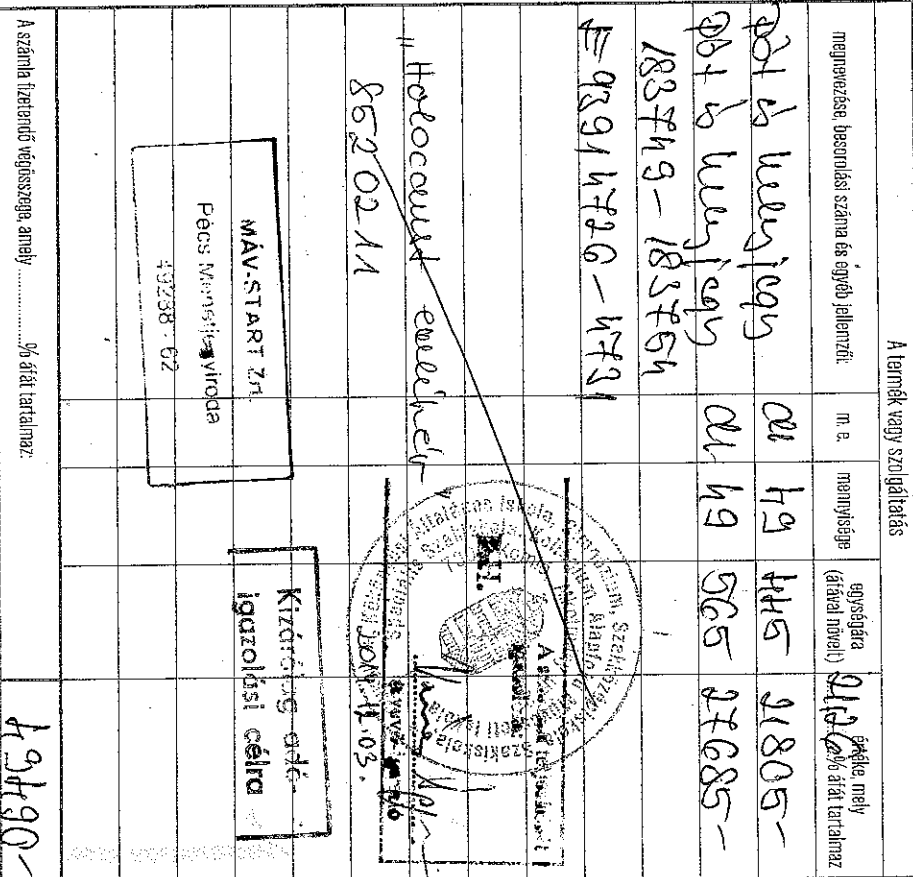 A termék vagy szolgáltatás
megnevezése, besorolási száma és egyéb jellemzői: m. e. mennyisége egységára (áfával növelt) értéke, mely 21,26% áfát tartalmaz
pót és helyjegy db 49 445 21805-
pót és helyjegy db 49 565 27685-
183749 - 183754
E-9391 4726 - 473
"Holocaust emlékév"
8520211
MÁV-START Zrt.
Pécs Menetjegyiroda
49238 - 62
P.H.
2014.12.03.
Kizárólag adó-
igazolási célra
A számla fizetendő végösszege, amely ............% áfát tartalmaz: 49490-